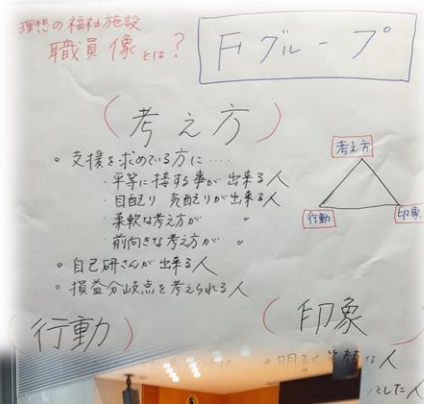 理想の福祉施設
職員像とは?
Fグループ
(考え方)
。支援を求めている方に‥‥
・平等に接する事が出来る人
・目配り 気配りが出来る人
・柔軟な考え方が 〃
・前向きな考え方が 〃
。自己研さんが出来る人
。損益分岐点を考えられる人
考え方
行動
印象
(行動)
(印象
。明るく笑顔な人
とした人